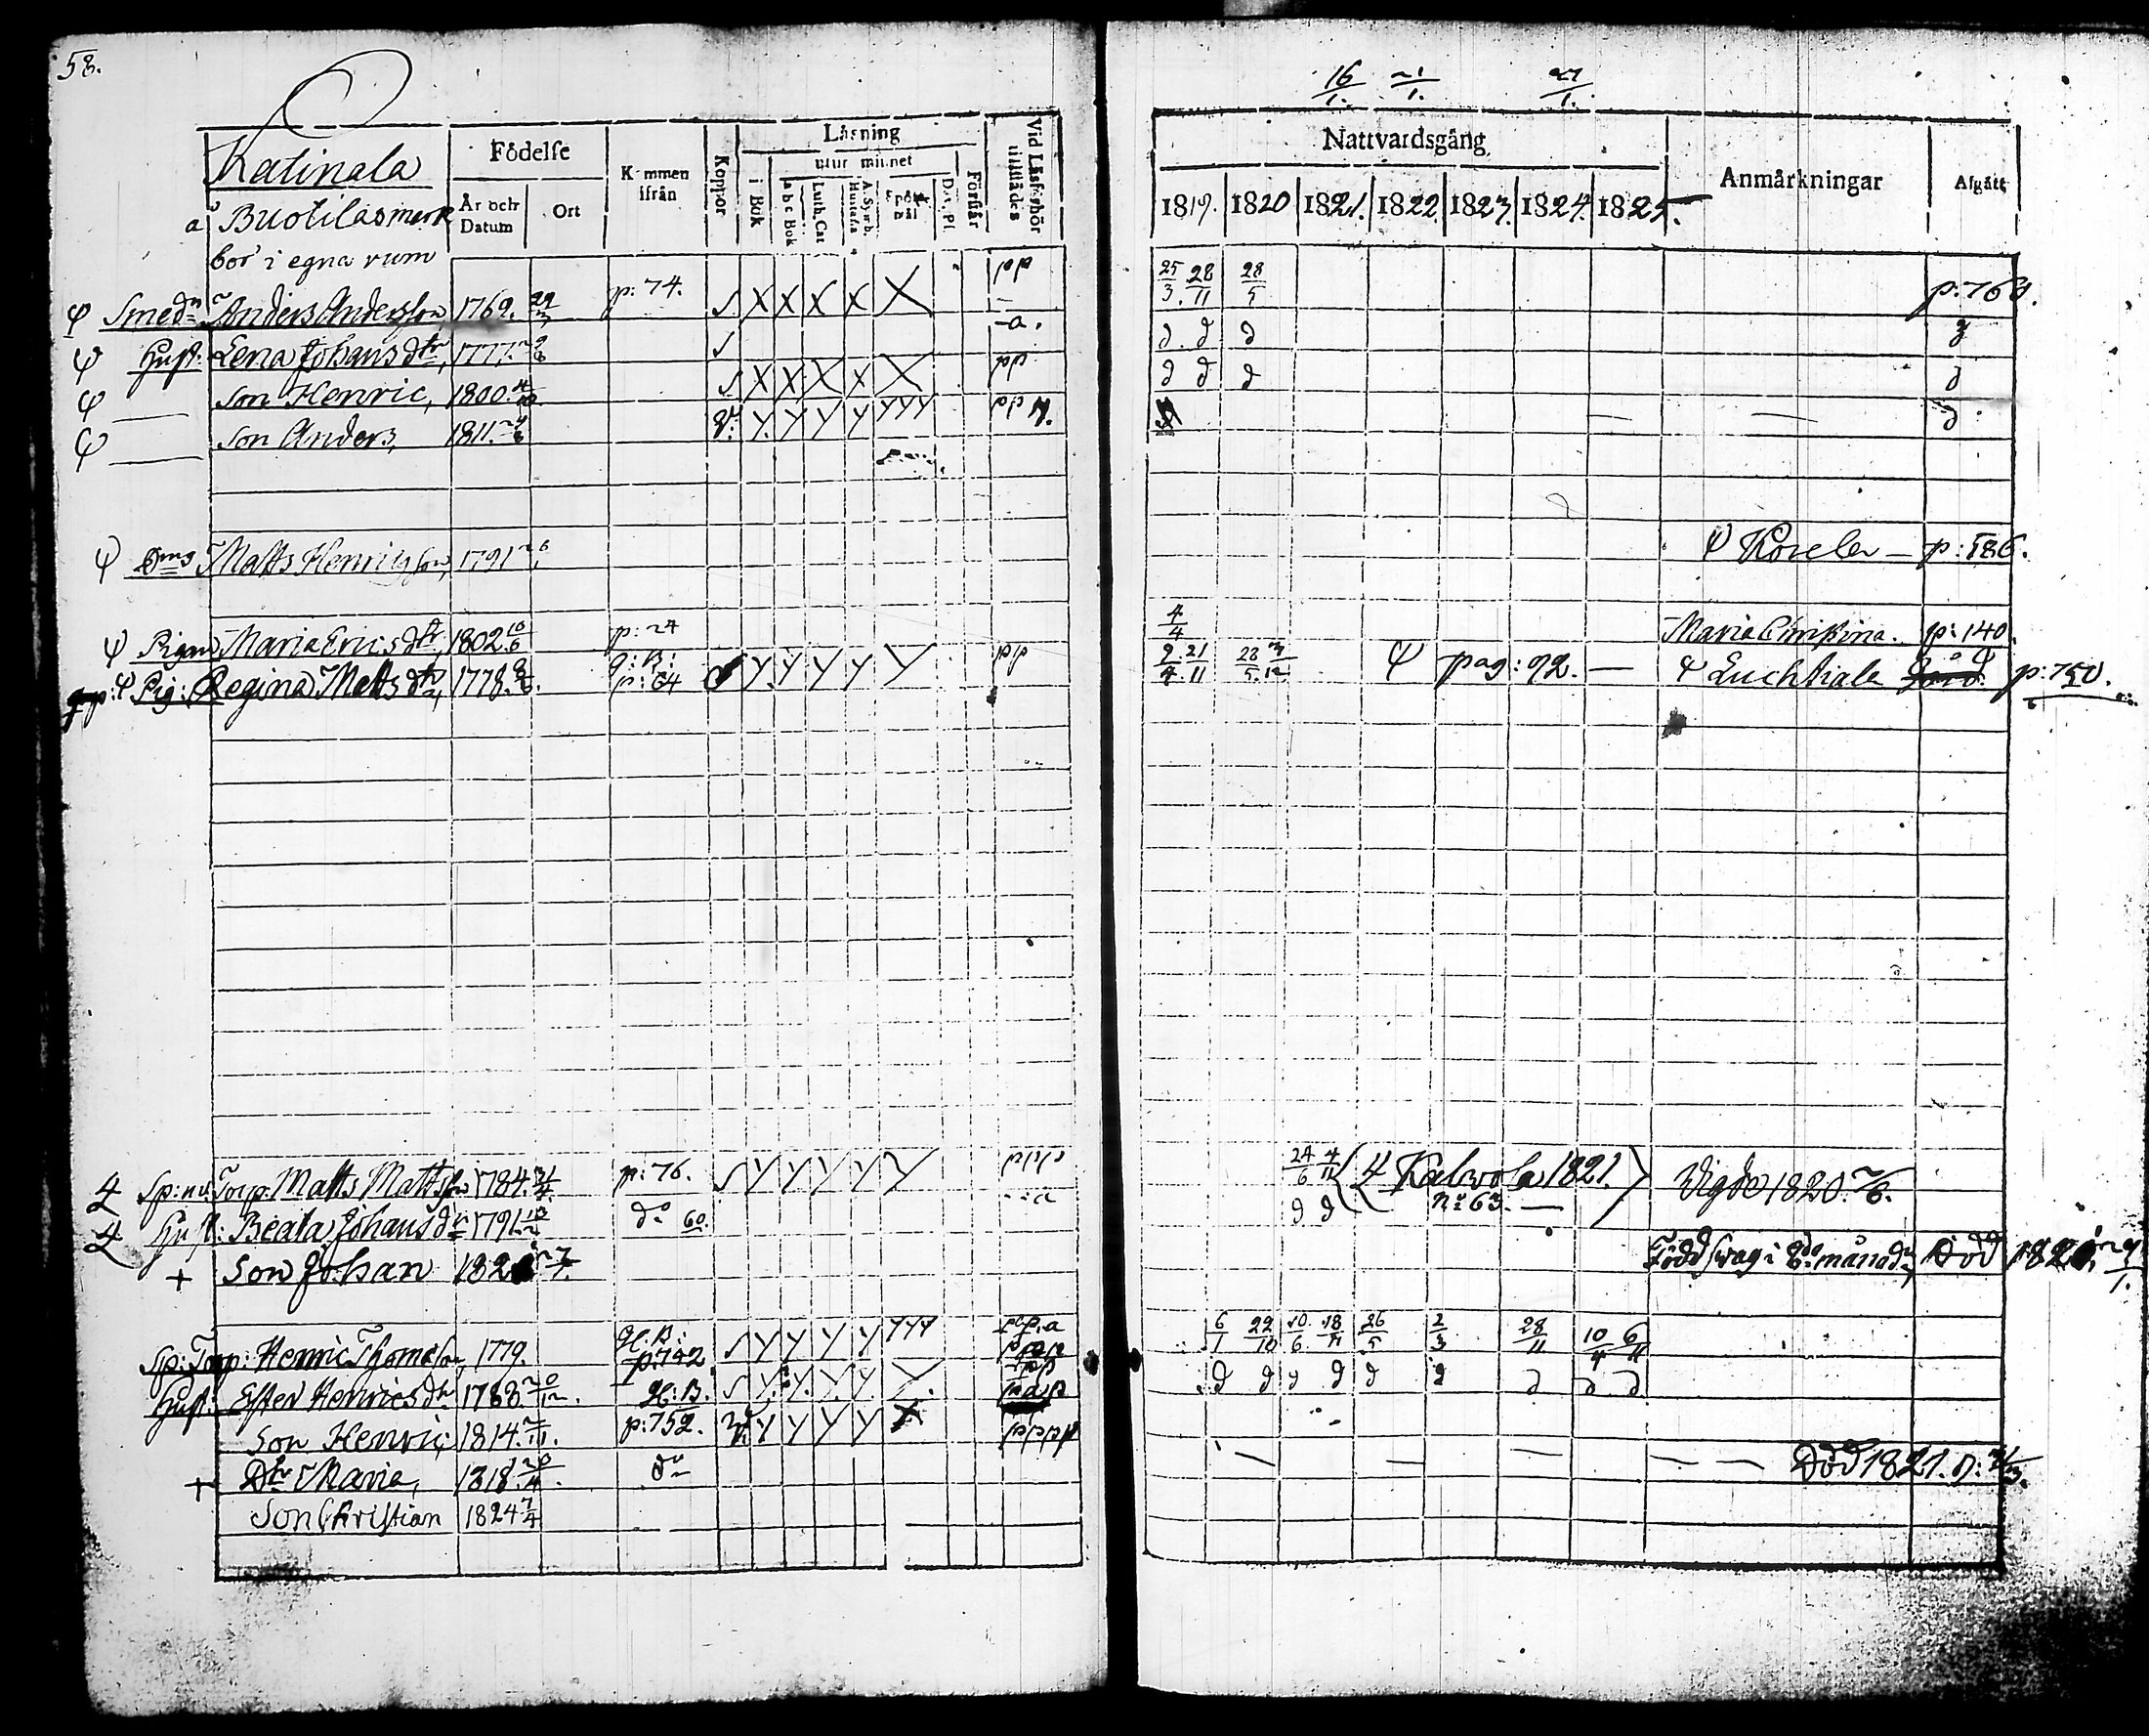 58.
16/1. 21/1. 27/1.
Katinala
a Buotilasmark
bor i egna rum
Födelse
År och Datum
Ort
Kommen ifrån
Koppor
Läsning
i Bok
utur minnet
a b c Bok
Luth. Cat
A. Symb. Hustafla
Spörsmål
Dav. Ps.
Förstår
Vid Läsförhör tillstädes
Nattvardsgång
1819. 1820 1821. 1822. 1823. 1824. 1825.
Anmärkningar
Afgått
Smedn Anders Andersson, 1769. p: 74. pp 25/3. 28/11 28/5
Hust: Lena Johansdtr, 1777. a. d. d d
Son Henric, 1800. pp d d d d
Son Anders, 1811. d
Matts Henricsson, 1791 Ψ p: 186.
Pigan Maria Ericsdtr, 1802. 10/6 p: 24 4/4 Maria Christina. p: 140.
Pig: Regina Mattsdtr, 1778. p: 64 pp Ψ pag: 92. — Ψ Luchtiala p: 150.
Torp: Matts Mattsson 1784. p: 76. 24/6 4/11 Kalvola 1821. Vigde 1820.
Hust: Beata Johansdr 1791. do 60. a d d No 63. —
+ Son Johan Född svag i 8de månadn, Död
Sp: Torp: Henric Thomasson, 1779. p: 742 pp.a 6/1 29/10 10/6 18/11 26/5 2/3 28/11 10/4 6/11
Hust: Ester Henricsdr 1788. Gl: B. d d d d d d d d d
Son Henric, 1814. p: 752. pppp
+ Dtr Maria, 1818. do — — — — — Död 1821.
Son Christian 1824 7/4